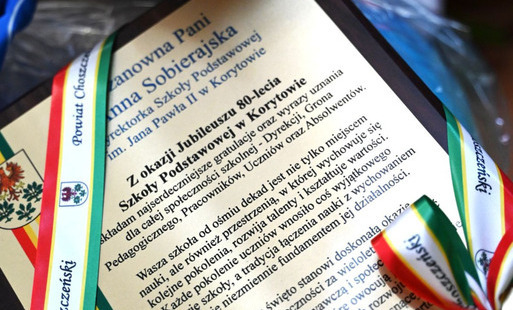 Szanowna Pani
Anna Sobierajska
Dyrektorka Szkoły Podstawowej
im. Jana Pawła II w Korytowie
Z okazji Jubileuszu 80-lecia
Szkoły Podstawowej w Korytowie
składam najserdeczniejsze gratulacje oraz wyrazy uznania
dla całej społeczności szkolnej - Dyrekcji, Grona
Pedagogicznego, Pracowników, Uczniów oraz Absolwentów.
Wasza szkoła od ośmiu dekad jest nie tylko miejscem
nauki, ale również przestrzenią, w której wychowuje się
kolejne pokolenia, rozwija talenty i kształtuje wartości.
Każde pokolenie uczniów wnosiło coś wyjątkowego
szkoły, a tradycja łączenia nauki z wychowaniem
niezmiennie fundamentem jej działalności.
święto stanowi doskonałą okazję
za wieloletni
i społecz
owocują
rozwoju
Powiat Choszcze
szczeński
szczeński
oszczeński